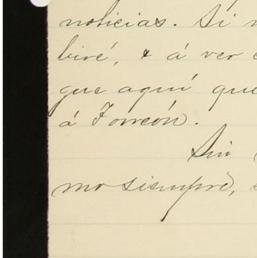 noticias. Si
biré, & á ver
que aquí que
á Torreón.
Sin
mo siempre,